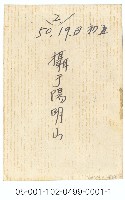 2/
50.19日初五
攝于陽明山
05-001-102-0499-0001-1